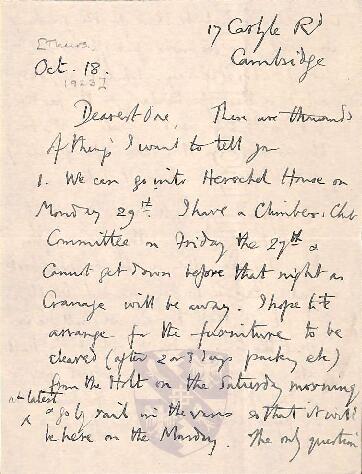 17 Carlyle Rd
Cambridge
[Thurs.
Oct. 18.
1923]
Dearest One, There are thousands
of things I want to tell you
1. We can go into Herschel House on
Monday 29th. I have a Climbers' Club
Committee on Friday the 27th &
cannot get down before that night as
Cranage will be away. I hope to
arrange for the furniture to be
cleared (after 2 or 3 days packing etc)
from the Holt on the Saturday morning
at latest
& go by rail in the vans so that it will
be here on the Monday. The only question